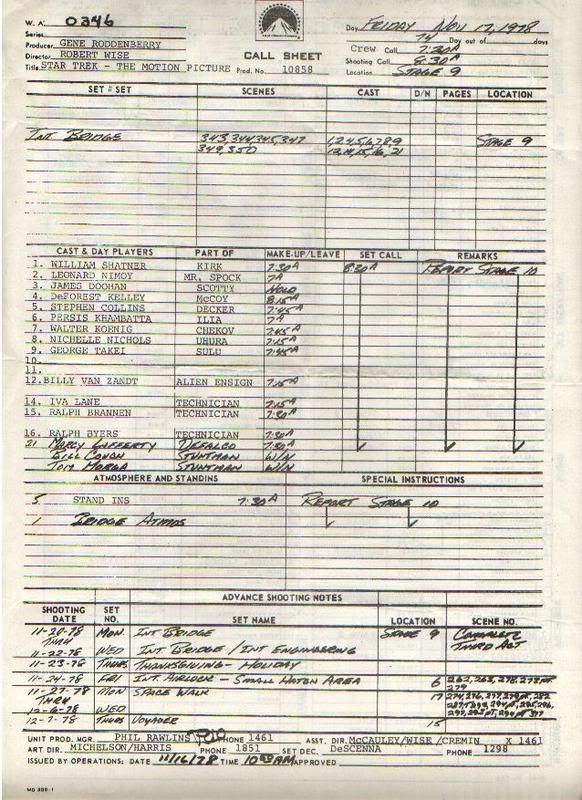 W. A. 0346
Day FRIDAY NOV 17, 1978
Series
74 Day out of days
Producer GENE RODDENBERRY
Crew Call 7:30A
Director ROBERT WISE
CALL SHEET
Shooting Call 8:30A
Title STAR TREK - THE MOTION PICTURE Prod. No. 10858
Location STAGE 9
SET # SET SCENES CAST D/N PAGES LOCATION
INT BRIDGE 343,344,345,347 1,2,4,5,6,7,8,9 STAGE 9
349,350 12,14,15,16,21
CAST & DAY PLAYERS PART OF MAKE-UP/LEAVE SET CALL REMARKS
1. WILLIAM SHATNER KIRK 7:30A 8:30A REPORT STAGE 10
2. LEONARD NIMOY MR. SPOCK 7A
3. JAMES DOOHAN SCOTTY HOLD
4. DeFOREST KELLEY McCOY 8:15A
5. STEPHEN COLLINS DECKER 7:45A
6. PERSIS KHAMBATTA ILIA 7A
7. WALTER KOENIG CHEKOV 7:45A
8. NICHELLE NICHOLS UHURA 7:15A
9. GEORGE TAKEI SULU 7:45A
10.
11.
12. BILLY VAN ZANDT ALIEN ENSIGN 7:15A
14. IVA LANE TECHNICIAN 7:15A
15. RALPH BRANNEN TECHNICIAN 7:30A
16. RALPH BYERS TECHNICIAN 7:30A
21 MARCY LAFFERTY DIFALCO 7:30A
BILL COUCH STUNTMAN W/N
TOM MORGA STUNTMAN W/N
ATMOSPHERE AND STANDINS SPECIAL INSTRUCTIONS
5 STAND INS 7:30A REPORT STAGE 10
1 BRIDGE ATMOS
ADVANCE SHOOTING NOTES
SHOOTING DATE SET NO. SET NAME LOCATION SCENE NO.
11-20-78 MON INT BRIDGE STAGE 9 COMPLETE
THRU THIRD ACT
11-22-78 WED INT BRIDGE / INT ENGINEERING
11-23-78 THURS THANKSGIVING - HOLIDAY
11-24-78 FRI INT AIRLOCK - SMALL 6 262, 263, 278, 278 PT
279
11-27-78 MON SPACE WALK 17
THRU
12-6-78 WED
12-7-78 THURS VOYAGER 15
UNIT PROD. MGR. PHIL RAWLINS PHONE 1461 ASST. DIR. McCAULEY/WISE/CREMIN X 1461
ART DIR. MICHELSON/HARRIS PHONE 1851 SET DEC. DeSCENNA PHONE 1298
ISSUED BY OPERATIONS: DATE 11/16/78 TIME 10:00AM APPROVED